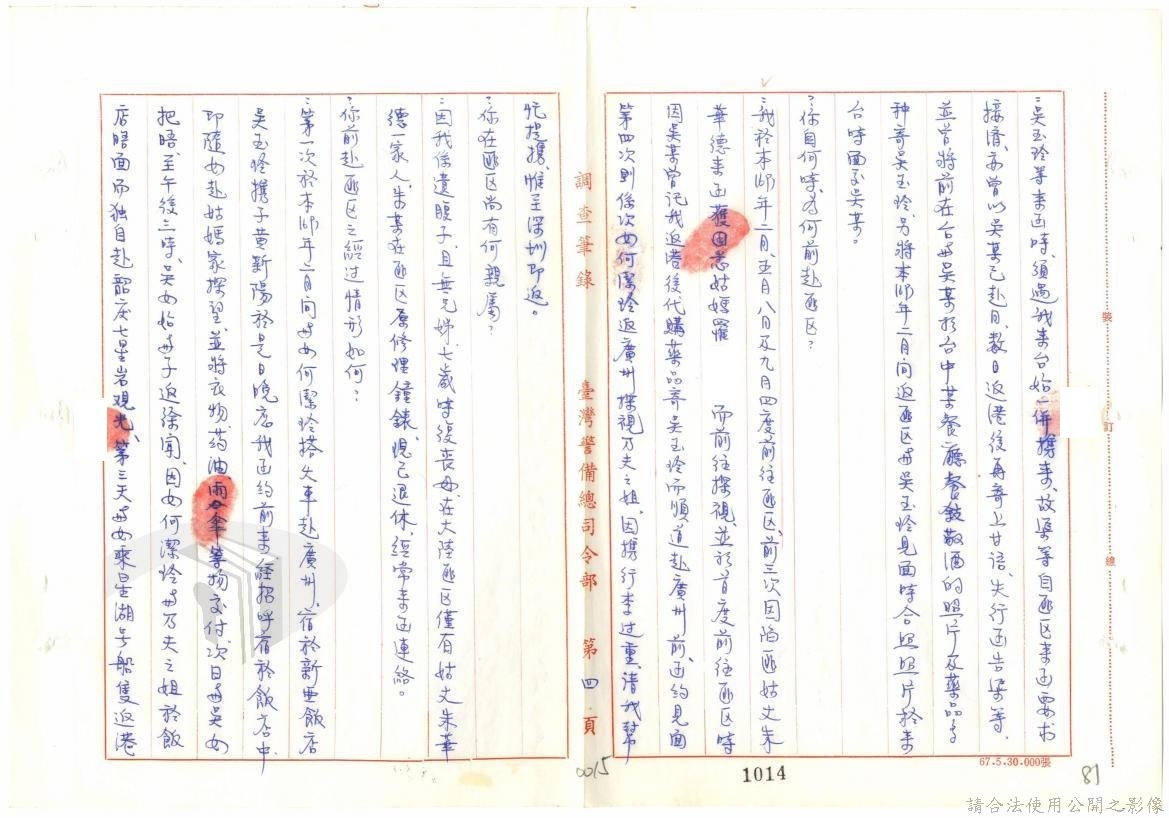 :吳玉玲等來函時,須過我來台始一併携來,故渠等自匪区來函要求
接濟,亦曾以吳某已赴日,数日返港後再寄上甘語,先行函告渠等,
並曾將前在台與吳某於台中某餐廳餐敍敬酒的照片及藥品等
寄吳玉玲,另將本(67)年二月间返匪区與吳玉玲見面時合照照片於來
台時面交吳某。
?你自何時,為何前赴匪区?
:我於本(67)年二月、五月八月及九月四度前往匪区,前三次因陷匪姑丈朱
華德來函獲因悉姑媽罹 而前往探視,並於首度前往匪区時
因吳某曾託我返港後代購藥品寄吳玉玲而順道赴廣州前,函約見面
第四次則係次女何潔玲返廣州探視乃夫之姐,因携行李过重,請我幫
調查筆錄 臺灣警備總司令部 第四頁
忙提携,惟至深圳即返。
?你在匪区尚有何親屬?
:因我係遺腹子,且無兄姊,七歲時後喪母,在大陸匪区僅有姑丈朱華
德一家人,朱某在匪区原修理鐘錶,現已退休,經常來函連絡。
?你前赴匪区之經过情形如何?
:第一次於本(67)年二月间與女何潔玲搭火車赴廣州,宿於新亜飯店
吳玉玲携子黄新陽於是日晚店我函約前來,經招呼宿於飯店中,
即隨女赴姑媽家探望,並將衣物药油,雨傘等物交付,次日與吳女
把晤至午後三時,吳女始與子返徐聞,因女何潔玲與乃夫之姐於飯
店晤面而独自赴韶庆七星岩观光,第三天與女乘星湖号船隻返港
裝
訂
線
67.5.30.000張
0015
1014
81
請合法使用公開之影像